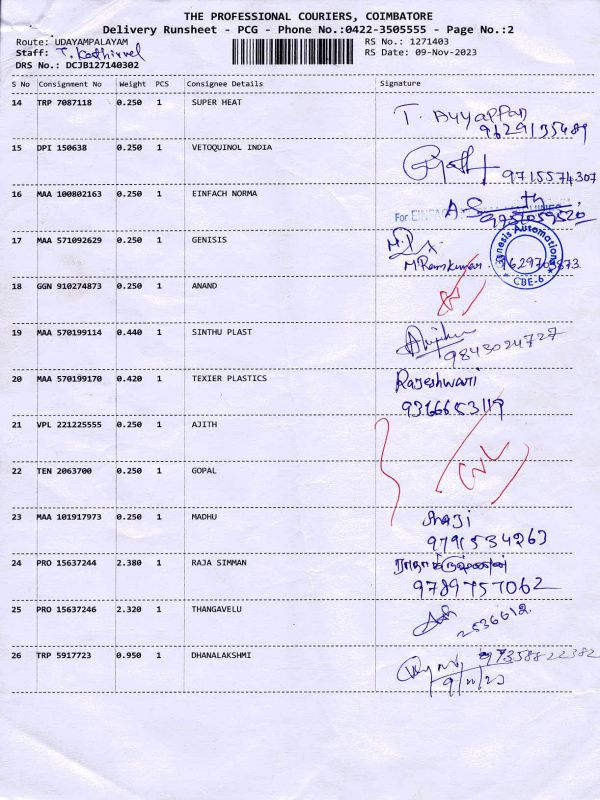 THE PROFESSIONAL COURIERS, COIMBATORE
Delivery Runsheet - PCG - Phone No.:0422-3505555 - Page No.:2
Route: UDAYAMPALAYAM RS No.: 1271403
Staff: T. Kathirvel RS Date: 09-Nov-2023
DRS No.: DCJB127140302
S No Consignment No Weight PCS Consignee Details Signature
14 TRP 7087118 0.250 1 SUPER HEAT T. Ayyappan
9629135489
15 DPI 150638 0.250 1 VETOQUINOL INDIA
9715574307
16 MAA 100802163 0.250 1 EINFACH NORMA
For EINFAC
17 MAA 571092629 0.250 1 GENISIS
M Ramkumar
Automation
CBE-6
18 GGN 910274873 0.250 1 ANAND
19 MAA 570199114 0.440 1 SINTHU PLAST
9843024727
20 MAA 570199170 0.420 1 TEXIER PLASTICS Rajeshwari
21 VPL 221225555 0.250 1 AJITH
22 TEN 2063700 0.250 1 GOPAL
23 MAA 101917973 0.250 1 MADHU Shaji
9791534263
24 PRO 15637244 2.380 1 RAJA SIMMAN
9789757062
25 PRO 15637246 2.320 1 THANGAVELU
2536612
26 TRP 5917723 0.950 1 DHANALAKSHMI 97358822382
9/11/23